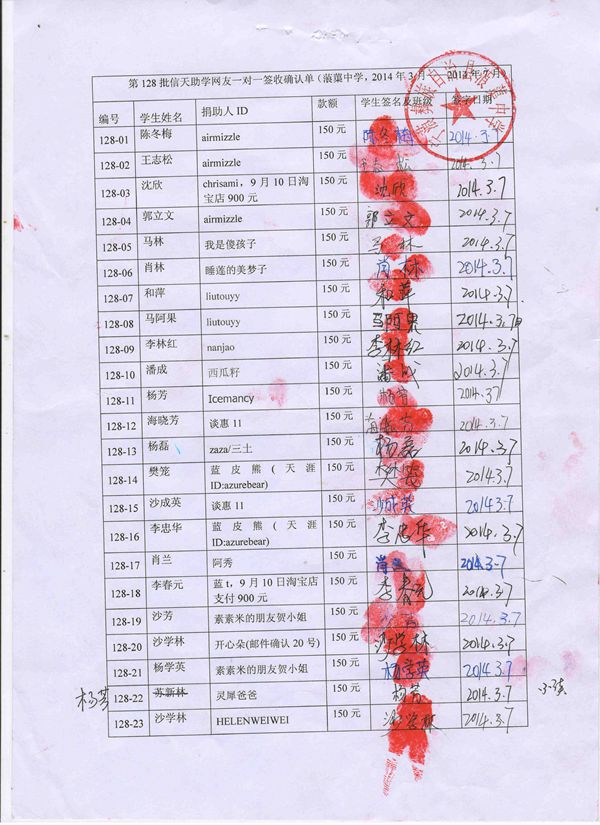 第 128 批信天助学网友一对一签收确认单（蒗蕖中学，2014 年 3 月 2014 年 7 月
编号 学生姓名 捐助人 ID 款额 学生签名及班级 签字日期
128-01 陈冬梅 airmizzle 150 元 陈冬梅 2014.3.7
128-02 王志松 airmizzle 150 元 王志松 2014.3.7
128-03 沈欣 chrisami，9 月 10 日淘 150 元 沈欣 2014.3.7
宝店 900 元
128-04 郭立文 airmizzle 150 元 郭立文 2014.3.7
128-05 马林 我是傻孩子 150 元 马林 2014.3.7
128-06 肖林 睡莲的美梦子 150 元 肖林 2014.3.7
128-07 和萍 liutouyy 150 元 和萍 2014.3.7
128-08 马阿果 liutouyy 150 元 马阿果 2014.3.7
128-09 李林红 nanjao 150 元 李林红 2014.3.7
128-10 潘成 西瓜籽 150 元 潘成 2014.3.7
128-11 杨芳 Icemancy 150 元 杨芳 2014.37
128-12 海晓芳 谈惠 11 150 元 2014.3.7
128-13 杨磊 zaza/三土 150 元 杨磊 2014.3.7
128-14 樊笼 蓝皮熊（天涯 150 元 2014.3.7
ID:azurebear)
128-15 沙成英 谈惠 11 150 元 沙成英 2014.3.7
128-16 李忠华 蓝皮熊（天涯 150 元 李忠华 2014.3.7
ID:azurebear)
128-17 肖兰 阿秀 150 元 肖兰 2014.3.7
128-18 李春元 蓝 t，9 月 10 日淘宝店 150 元 李春元 2014.3.7
支付 900 元
128-19 沙芳 素素米的朋友贺小姐 150 元 2014.3.7
128-20 沙学林 开心朵(邮件确认 20 号) 150 元 沙学林 2014.3.7
128-21 杨学英 素素米的朋友贺小姐 150 元 杨学英 2014.3.7
杨芳 128-22 苏新林 灵犀爸爸 150 元 杨芳 2014.3.7
128-23 沙学林 HELENWEIWEI 150 元 沙学林 2014.3.7